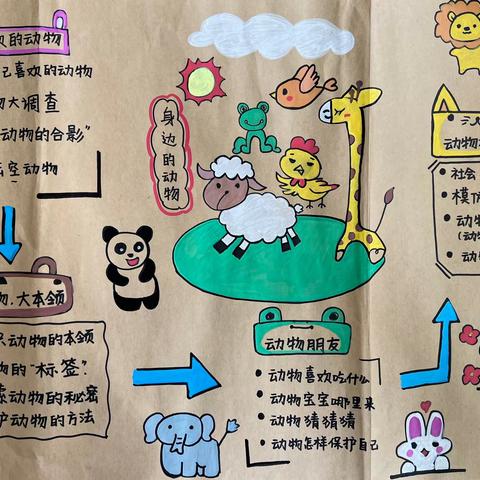 欢的动物
己喜欢的动物
物大调查
动物的合影”
动物
身边的动物
动物.大本领
动物的本领
物的“标签”.
索动物的秘密
护动物的方法
动物朋友
• 动物喜欢吃什么
• 动物宝宝哪里来
• 动物猜猜猜
• 动物怎样保护自己
动物
• 社会
• 模仿
• 动物
(动物
• 动物